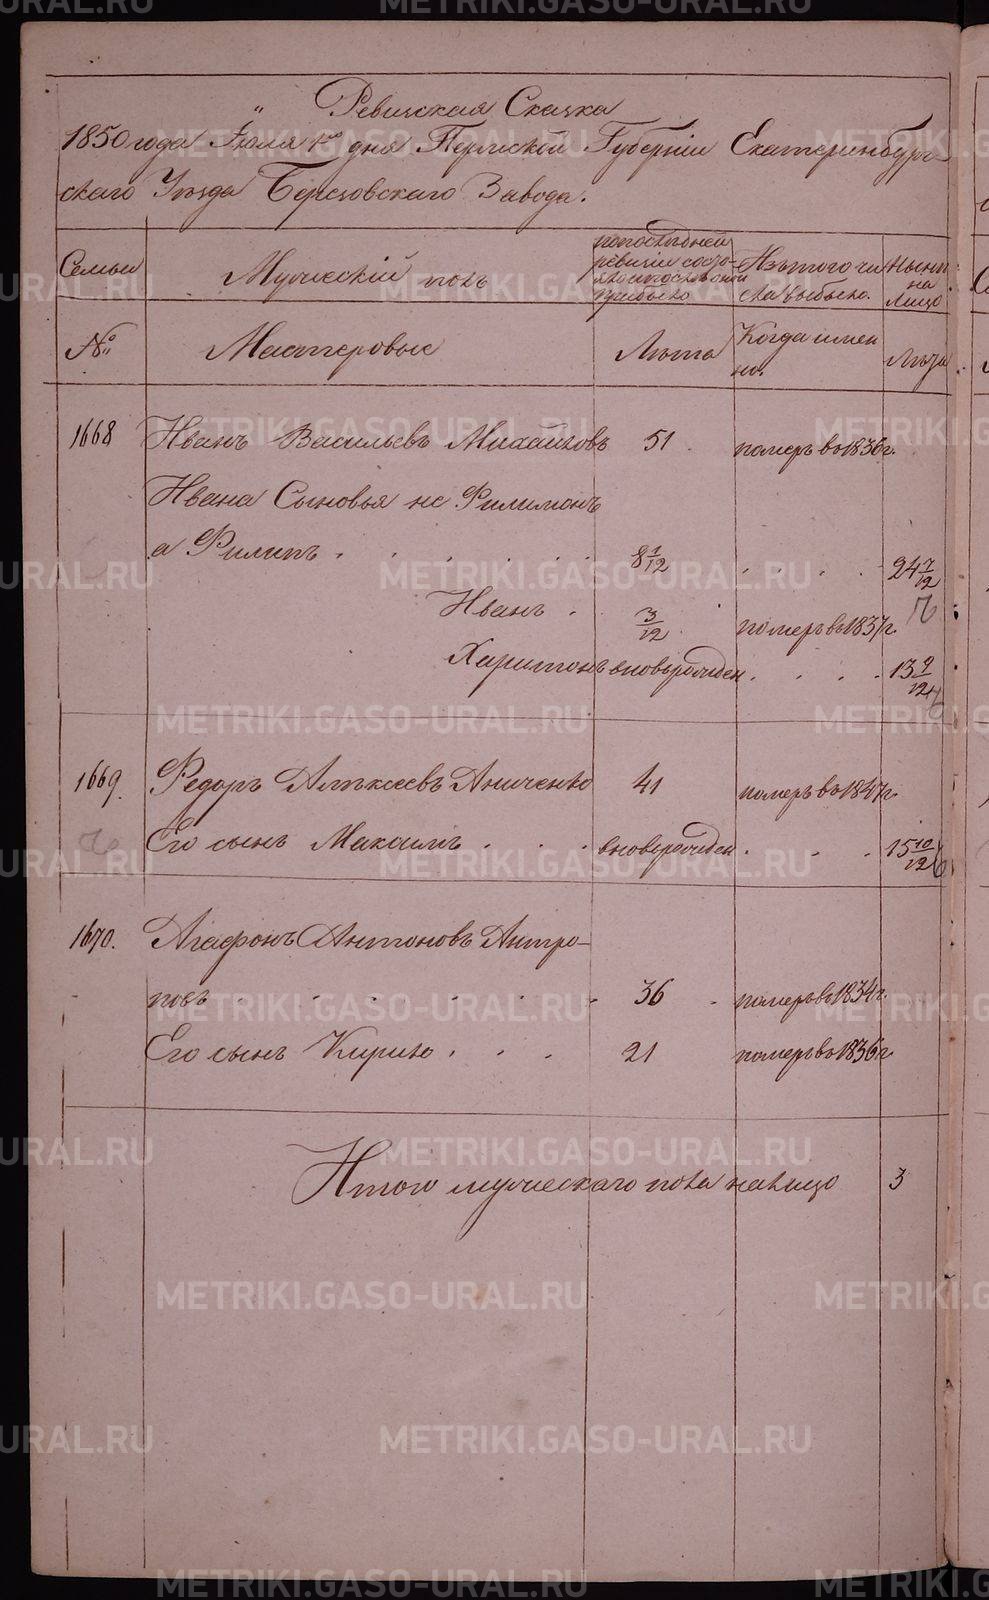 Ревижская Сказка
1850 года Июля 1го дня Пермской Губернiи Екатеринбург-
скаго Уѣзда Березовскаго Завода.
Семьи
Мужескiй полъ
по последней
ревизiи состо-
яло и после оной
прибыло
Изъ того чи
сла выбыло.
Нынѣ
на
Лицо
№
Мастеровые
Лѣта
Когда имен
но.
Лѣта
1668 Иванъ Васильевъ Михайловъ 51 померъ въ 1836 г.
Ивана Сыновья не Филимонъ
а Филипъ . . . . . . 8 1/12 . . . . 24 7/12
Иванъ . 3/12 померъ въ 1837 г.
Харитонъ вновь рожден . . . . 13 9/12
1669. Федоръ Алексеевъ Аниченко 41 померъ въ 1847 г.
Его сынъ Максимъ . . . вновь рожден . . . 15 10/12
1670. Агафонъ Антоновъ Антро-
повъ . . . . . . 36 . померъ въ 1834 г.
Его сынъ Кирило . . . 21 померъ въ 1836 г.
Итого мужескаго пола налицо 3
METRIKI.GASO-URAL.RU